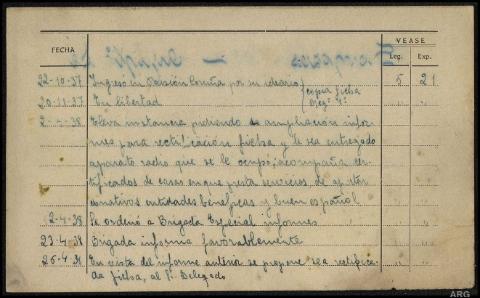 VEASE
FECHA Leg. Exp.
22-10-37 Ingresó en Prisión Coruña por su ideario 5 21
copia ficha
20-11-37 En libertad
2-4-38 Eleva instancia pidiendo ampliación infor-
mes para rectificación ficha y le sea entregado
aparato radio que se le ocupó; acompaña cer-
tificados de casas en que presta servicios, de
entidades benéficas y buen español
2-4-38 Se ordenó a Brigada Especial informes
23-4-38 Brigada informa favorablemente
25-4-38 En vista del informe anterior se propone sea rectifica-
da ficha, al Sr. Delegado
ARG